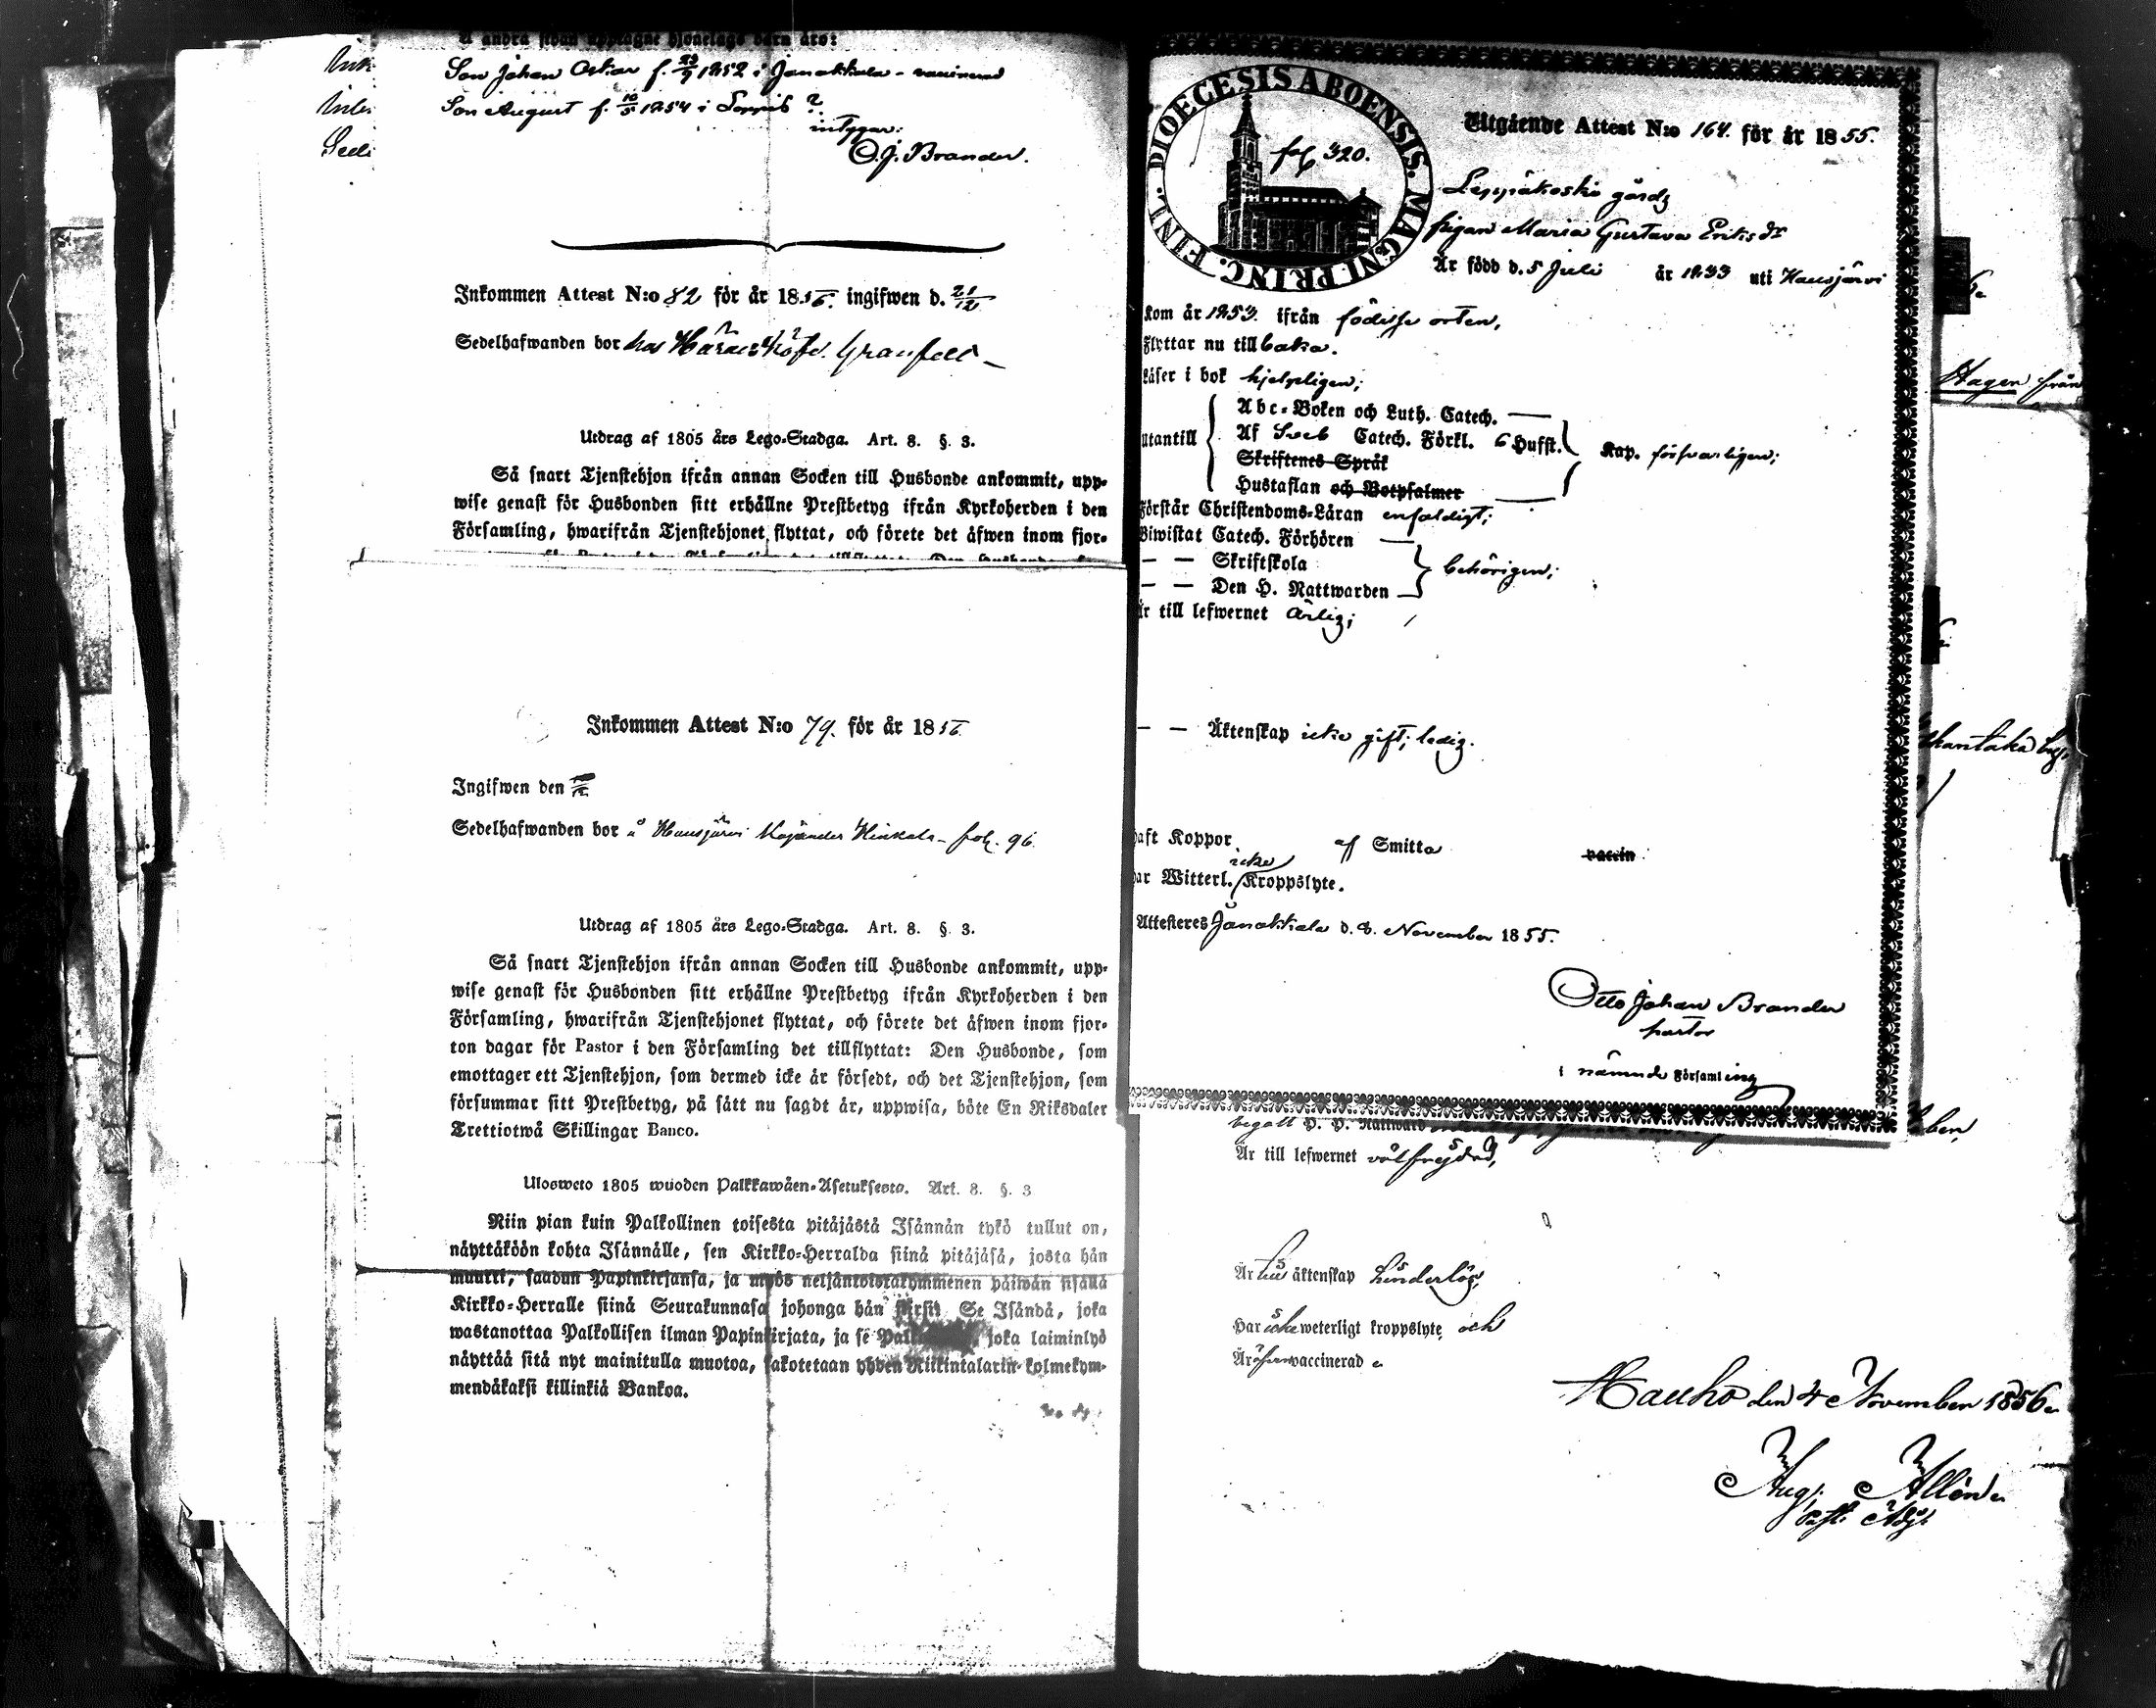 å andra sidan upptagne hjonelags barn äro:
Son Johan Oskar f. 23/9 1852 i Janakkala - vaccinerad
Son August f. 10/5 1854 i Loppis ?
intygar:
O. J. Brander.
Inkommen Attest N:o 82 för år 1856. ingifwen d. 21/12
Sedelhafwanden bor hos Häradshöfd. Granfelt
Utdrag af 1805 års Lego-Stadga. Art. 8. §. 3.
Så snart Tjenstehjon ifrån annan Socken till Husbonde ankommit, upp-
wise genast för Husbonden sitt erhållne Prestbetyg ifrån Kyrkoherden i den
Församling, hwarifrån Tjenstehjonet flyttat, och förete det äfwen inom fjor-
Inkommen Attest N:o 79. för år 1856.
Ingifwen den
Sedelhafwanden bor å Hausjärvi Kajander Hinkala - fol. 96.
Utdrag af 1805 års Lego-Stadga. Art. 8. §. 3.
Så snart Tjenstehjon ifrån annan Socken till Husbonde ankommit, upp-
wise genast för Husbonden sitt erhållne Prestbetyg ifrån Kyrkoherden i den
Församling, hwarifrån Tjenstehjonet flyttat, och förete det äfwen inom fjor-
ton dagar för Pastor i den Församling det tillflyttat: Den Husbonde, som
emottager ett Tjenstehjon, som dermed icke är försedt, och det Tjenstehjon, som
försummar sitt Prestbetyg, på sätt nu sagdt är, uppwisa, böte En Riksdaler
Trettiotwå Skillingar Banco.
Ulosweto 1805 wuoden Palkkawäen-Asetuksesta. Art. 8. §. 3
Niin pian kuin Palkollinen toisesta pitäjästä Isännän tykö tullut on,
näyttäköön kohta Isännälle, sen Kirkko-Herralda siinä pitäjäsä, josta hän
muutti, saadun Papinkirjansa, ja myös neljäntoistakymmenen päiwän sisällä
Kirkko-Herralle siinä Seurakunnasa johonga hän siirsit Se Isändä, joka
wastanottaa Palkollisen ilman Papinkirjata, ja se joka laiminlyö
näyttää sitä nyt mainitulla muotoa, sakotetaan yhden Riikintalarin kolmekym-
mendäkaksi killinkiä Bankoa.
DIOECESIS ABOENSIS. MAGNI PRINC. FINL.
fol 320.
Utgående Attest N:o 164. för år 1855.
Leppäkoski gårds
pigan Maria Gustava Eriksdr
Är född d. 5 Juli år 1833 uti Hausjärvi
kom år 1853. ifrån födelse orten,
Flyttar nu tillbaka.
Läser i bok hjelpligen;
Abc-Boken och Luth. Catech.
utantill Af Sveb Catech. Förkl. 6 Hufst. Kap. försvarligen;
Skriftenes Språk
Hustaflan och Botpsalmer
Förstår Christendoms-Läran enfaldigt;
Biwistat Catech. Förhören
— — Skriftskola behörigen;
— — Den H. Nattwarden
är till lefwernet ärlig;
— — Äktenskap icke gift, ledig.
haft Koppor af Smitta vaccin
har Witterl. icke Kroppslyte.
Attesteres Janakkala d. 8. November 1855.
Otto Johan Brander
pastor
i nämnde Församling
Är till lefwernet välfrejdad,
Är till äktenskap hinderlös,
Har icke weterligt kroppslyte, och
Är äfven vaccinerad.
Hauho den 4 November 1856.
Aug. Allén
Past. Adj.
Hagen från